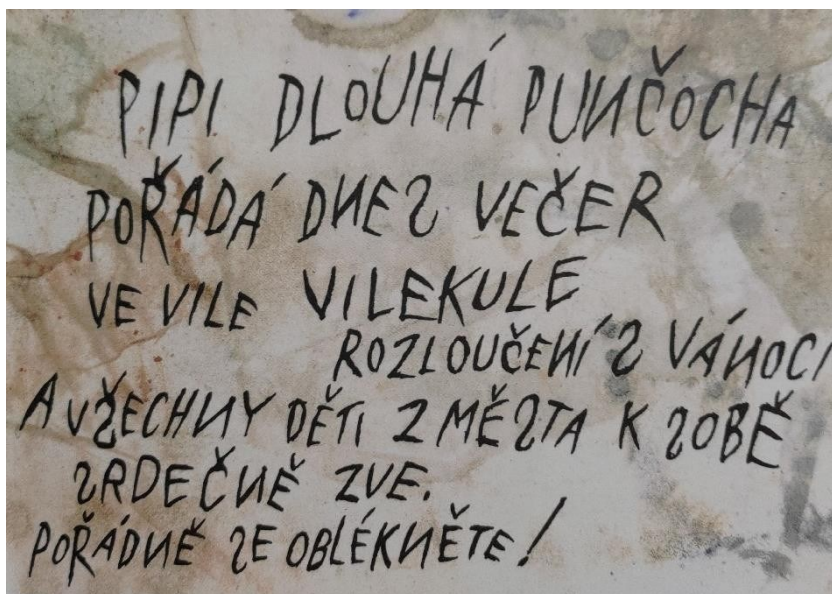 PIPI DLOUHÁ PUNČOCHA
POŘÁDÁ DNES VEČER
VE VILE VILEKULE
ROZLOUČENÍ S VÁNOCI
A VŠECHNY DĚTI Z MĚSTA K SOBĚ
SRDEČNĚ ZVE.
POŘÁDNĚ SE OBLÉKNĚTE!